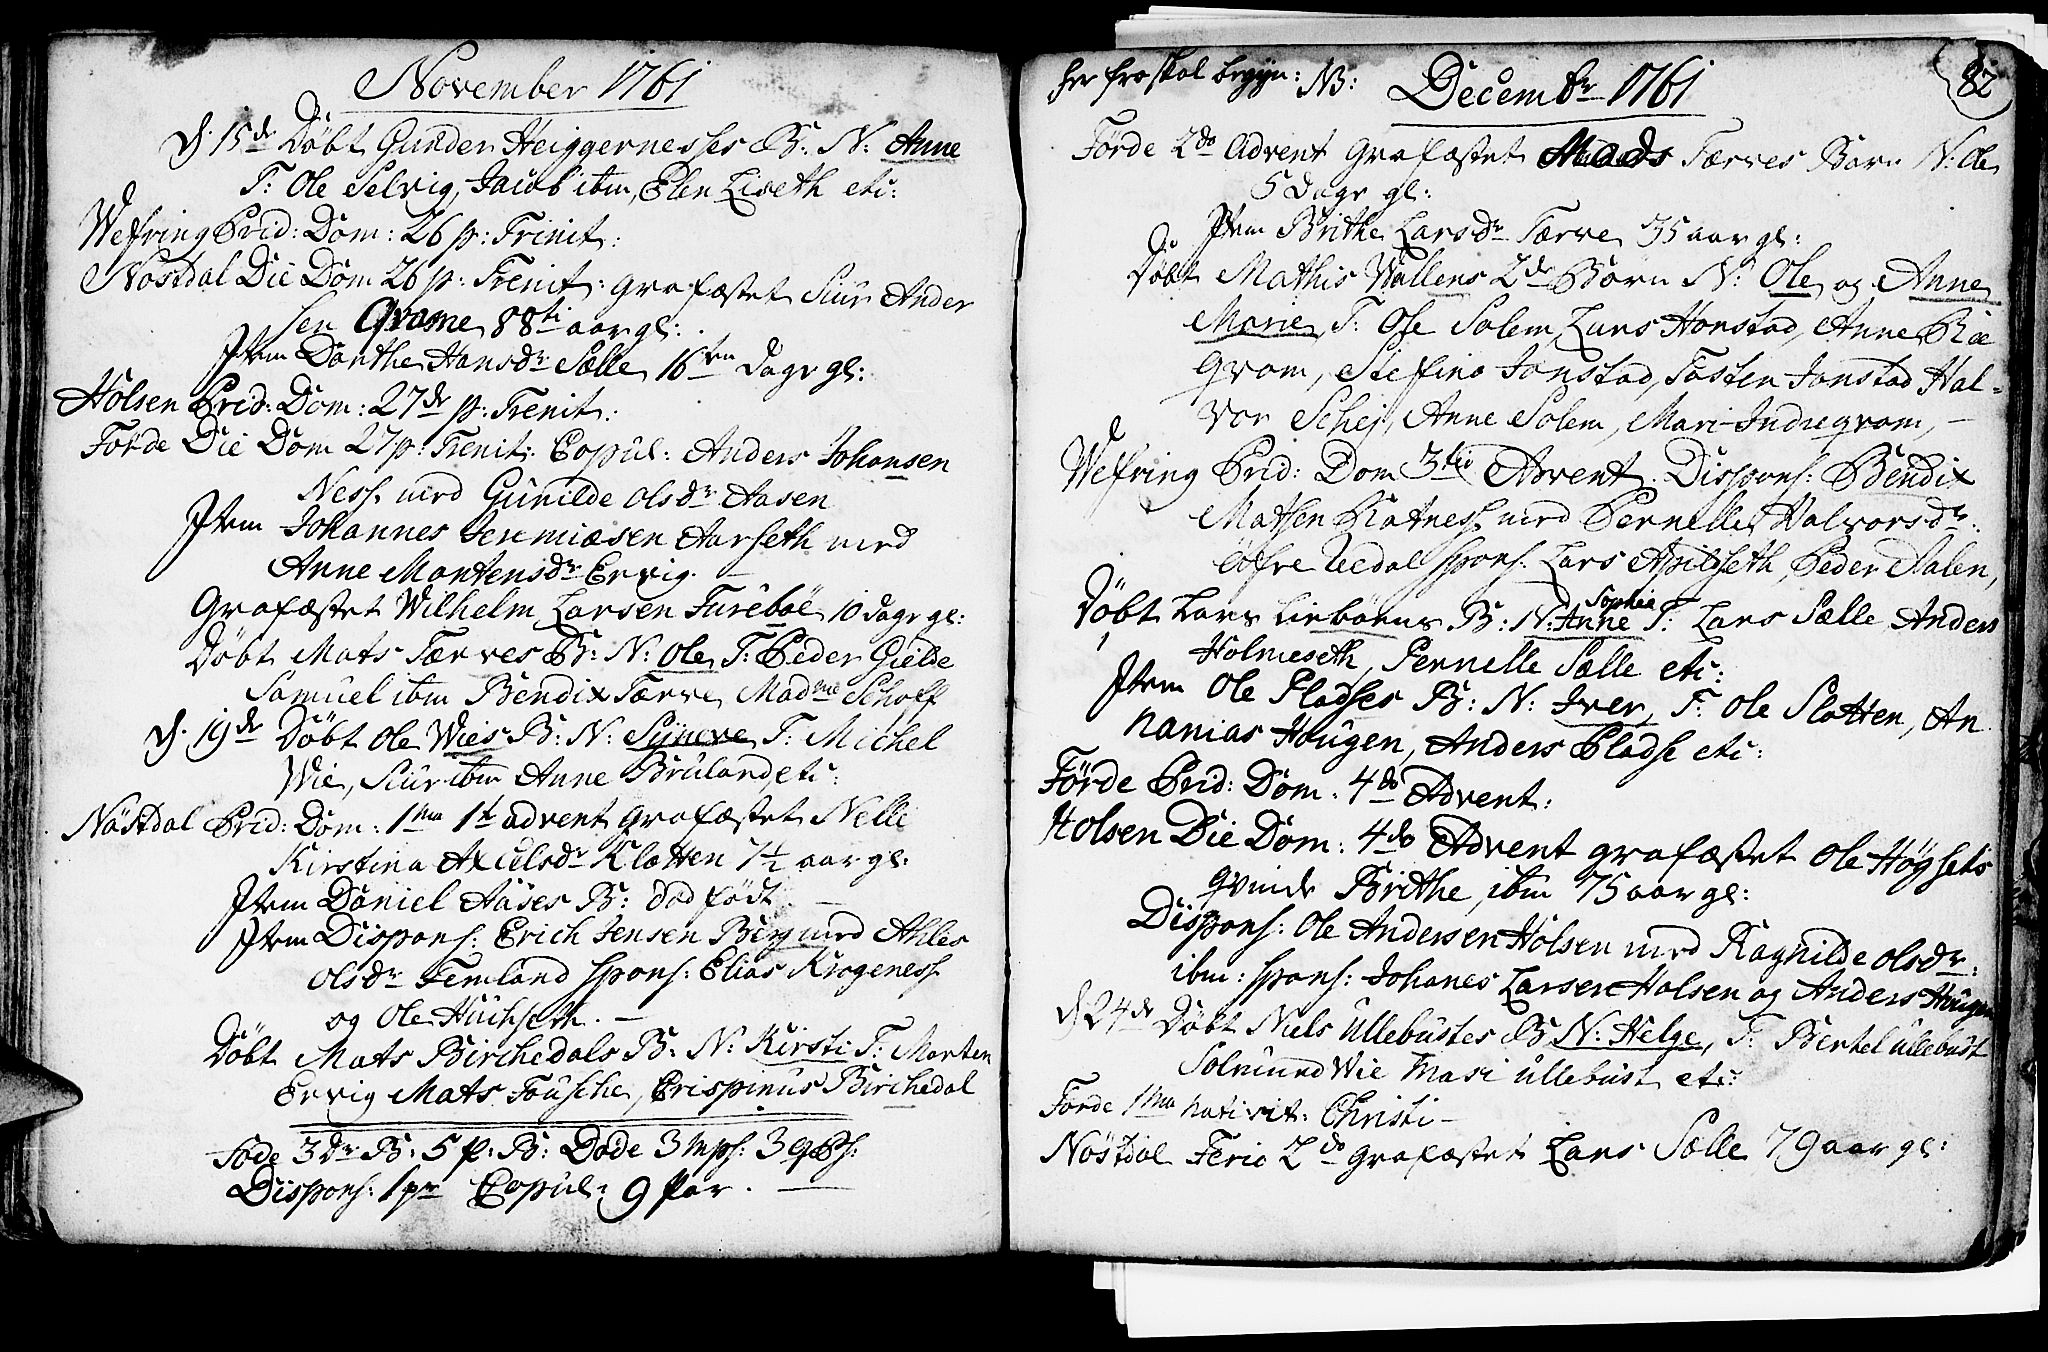 November 1761
d. 15de Döbt Gunder Heiggernesses B: N: Anne
T: Ole Selvig, Jacob ibm, Elen Liveth etc:
Wefring Prid: Dom: 26 p: Trinit:
Nöstdal Die Dom 26 p: Trenit: grafæstet Siur Ander
sen Qvame 88ti aar gl:
Item Dorthe Hansdr Sælle 16ten dage gl:
Holsen Prid: Dom: 27de p: Trenit:
Förde Die Dom 27 p: Trenit: Copul: Anders Johansen
Ness med Gunilde olsdr Aasen
Item Johannes Jeremiæsen Aarseth med
Anne Mortensdr Ervig. —
Grafæstet Wilhelm Larsen Fureböe 10 dage gl:
Döbt Mats Færves B: N: Ole T: Peder Gielde
Samuel ibm Bendix Færve Madme Schoff
d. 19de Döbt Ole Wies B: N: Syneve T: Michel
Wie, Siur ibm Anne Bruland, etc:
Nöstdal Prid: Dom: 1ma 1t advent grafæstet Nelle
Kirstina Axelsdr Klotten 7½ aar gl:
Item Daniel Aases B: död födt. —
Item Dispons: Erich Jensen Berg med Ahles
Olsdr Femland spons: Elias Krogeness
og Ole —
Döbt Mats Birchedals B: N: Kirsti T: Morten
Ervig Mats Fousche, Crispinus Birchedal
Föde 3 dr B: 5 p: B: Döde 3 mps: 3 qps:
Dispons: 1 pr Copul: 9 Par. —
her fra skal begyn: NB: Decembr 1761
82
Förde 2do Advent grafæstet Mads Færves Barn N: Ole
5 dage gl:
Item Brithe Larsdr Færve 35 aar gl:
Döbt Mathis Hallens 2de Börn N: Ole og Anne
Marie, T: Ole Solem, Lars Honstad, Anne Bræ
qvam, Steffina Jonstad, Tosten Jonstad Hal-
vor Schej, Anne Solem, Mari Indreqvam, —
Wefring Prid: Dom 3tie Advent. Dispons: Bendix
Matsen Ratness med Pernelle Halvorsdr.
öfre Uedal spons. Lars Apildseth Peder Aalen,
Döbt Lars Lieböens B: N: Anne Sophia T: Lars Sælle Anders
Holmeseth, Pernelle Sælle etc:
Item Ole Pladses B: N: Iver, T: Ole Slatten, An
nanias Hougen, Anders Pladse etc:
Förde Prid: Dom. 4do Advent:
Holsen Die Dom: 4do Advent grafæstet Ole Högsets
qvinde Brithe, ibm 75 aar gl:
Dispons: Ole Andersen Holsen med Ragnilde olsdr:
ibm: spons: Johanes Larsen Holsen og Anders Hougen
d. 24de Döbt Niels Ullebustes B N: Helge, T: Bertel Ullebust
Solmund Wie Mari Ullebust etc:
Förde 1ma nativit: Christi —
Nöstdal Feria 2do grafæstet Lars Sælle 79 aar gl: